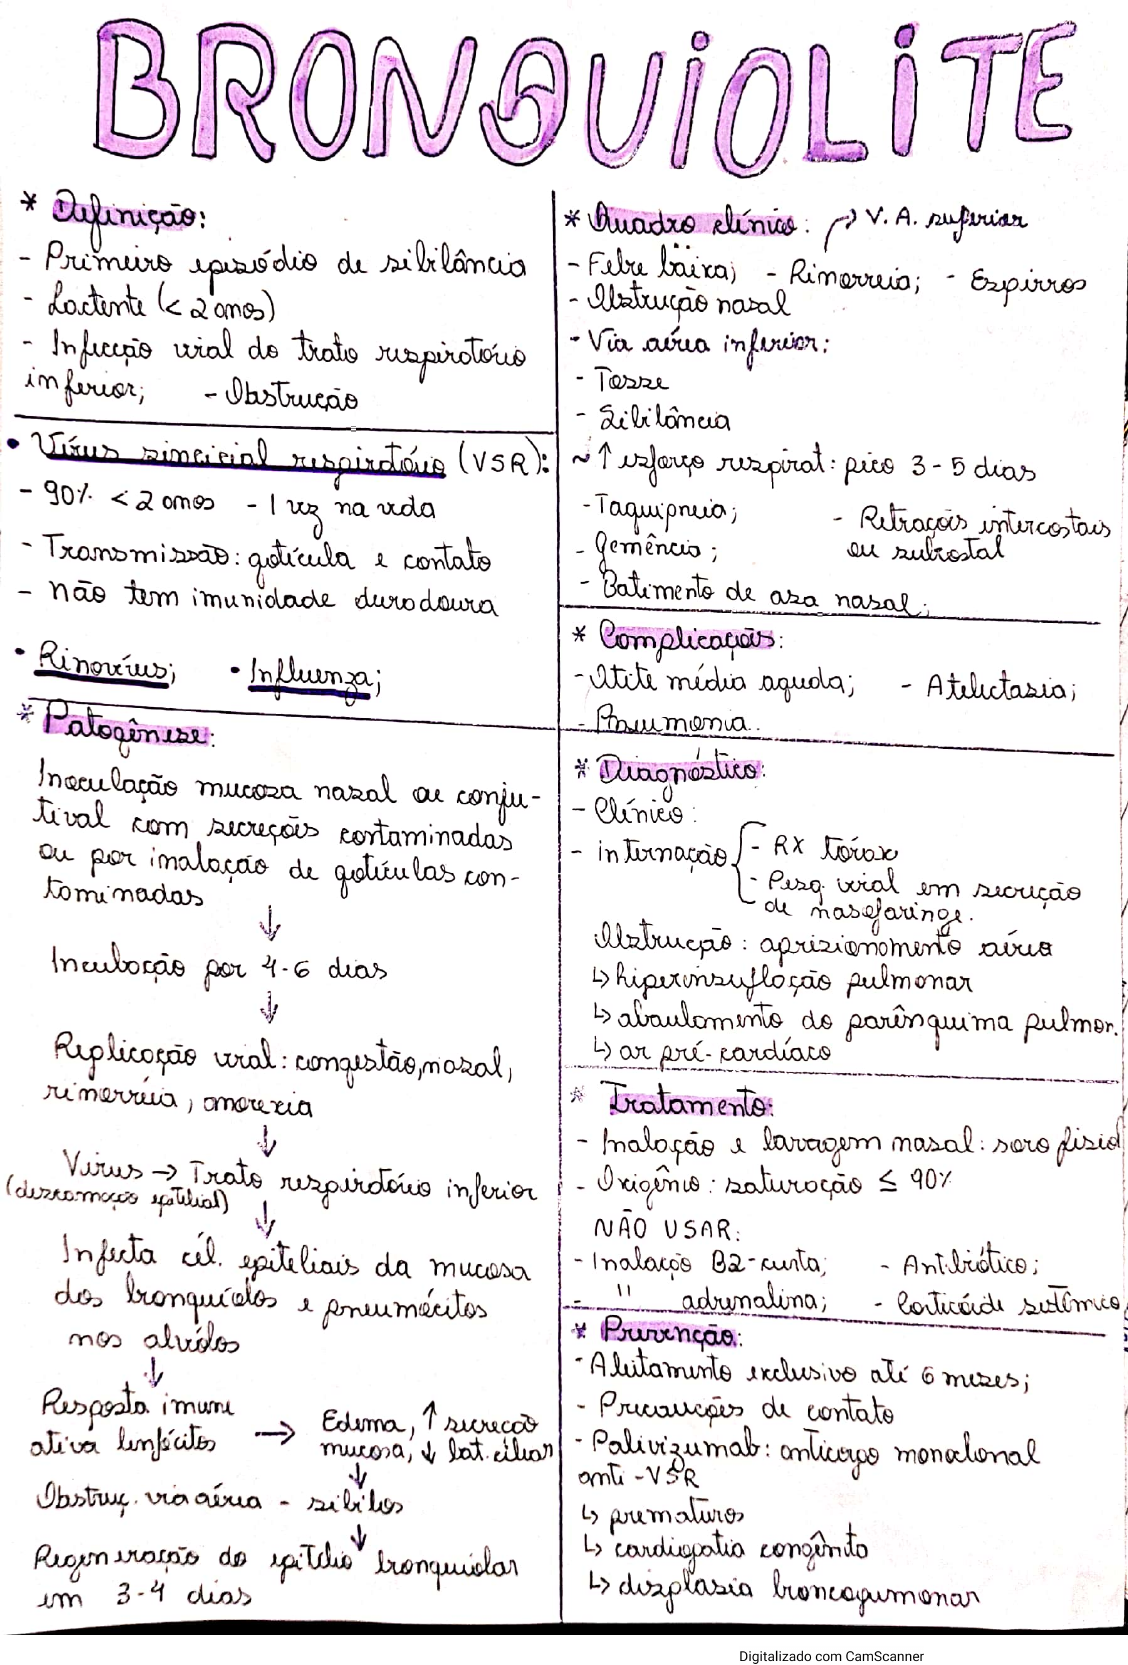 BRONQUIOLITE
* Definição:
- Primeiro episódio de sibilância
- Lactente (< 2 anos)
- Infecção viral do trato respiratório
inferior; - Obstrução
• Vírus sincicial respiratório (VSR):
- 90% < 2 anos - 1 vez na vida
- Transmissão: gotícula e contato
- não tem imunidade duradoura
• Rinovírus; • Influenza;
* Patogênese:
Inoculação mucosa nasal ou conju-
tival com secreções contaminadas
ou por inalação de gotículas con-
taminadas
↓
Incubação por 4-6 dias
↓
Replicação viral: congestão, nasal,
rinorréia, anorexia
↓
Vírus → Trato respiratório inferior
(descamação epitelial) ↓
Infecta cél. epiteliais da mucosa
dos bronquíolos e pneumócitos
nos alvéolos
↓
Resposta imune
ativa linfócitos → Edema, ↑ secreção
mucosa, ↓ bat. ciliar
↓
Obstruç. via aérea - sibilos
↓
Regeneração do epitélio bronquiolar
em 3-4 dias
* Quadro clínico: → V. A. superior
- Febre baixa; - Rinorreia; - Espirros
- Obstrução nasal
• Via aérea inferior:
- Tosse
- Sibilância
~ ↑ esforço respirat: pico 3-5 dias
- Taquipneia; - Retrações intercostais
ou subcostal
- Gemência;
- Batimento de asa nasal;
* Complicações:
- Otite média aguda; - Atelectasia;
- Pneumonia.
* Diagnóstico:
- Clínico:
- internação { - RX tórax
- Pesq. viral em secreção
de nasofaringe.
Obstrução: aprisionamento aéreo
↳ hiperinsuflação pulmonar
↳ abaulamento do parênquima pulmon.
↳ ar pré-cardíaco
* Tratamento:
- Inalação e lavagem nasal: soro fisiol
- Oxigênio: saturação ≤ 90%
NÃO USAR:
- Inalação B2-curta; - Antibiótico;
- " adrenalina; - Corticóide sistêmico
* Prevenção:
- Aleitamento exclusivo até 6 meses;
- Precauções de contato
- Palivizumab: anticorpo monoclonal
anti-VSR
↳ prematuros
↳ cardiopatia congênita
↳ displasia broncopumonar
Digitalizado com CamScanner